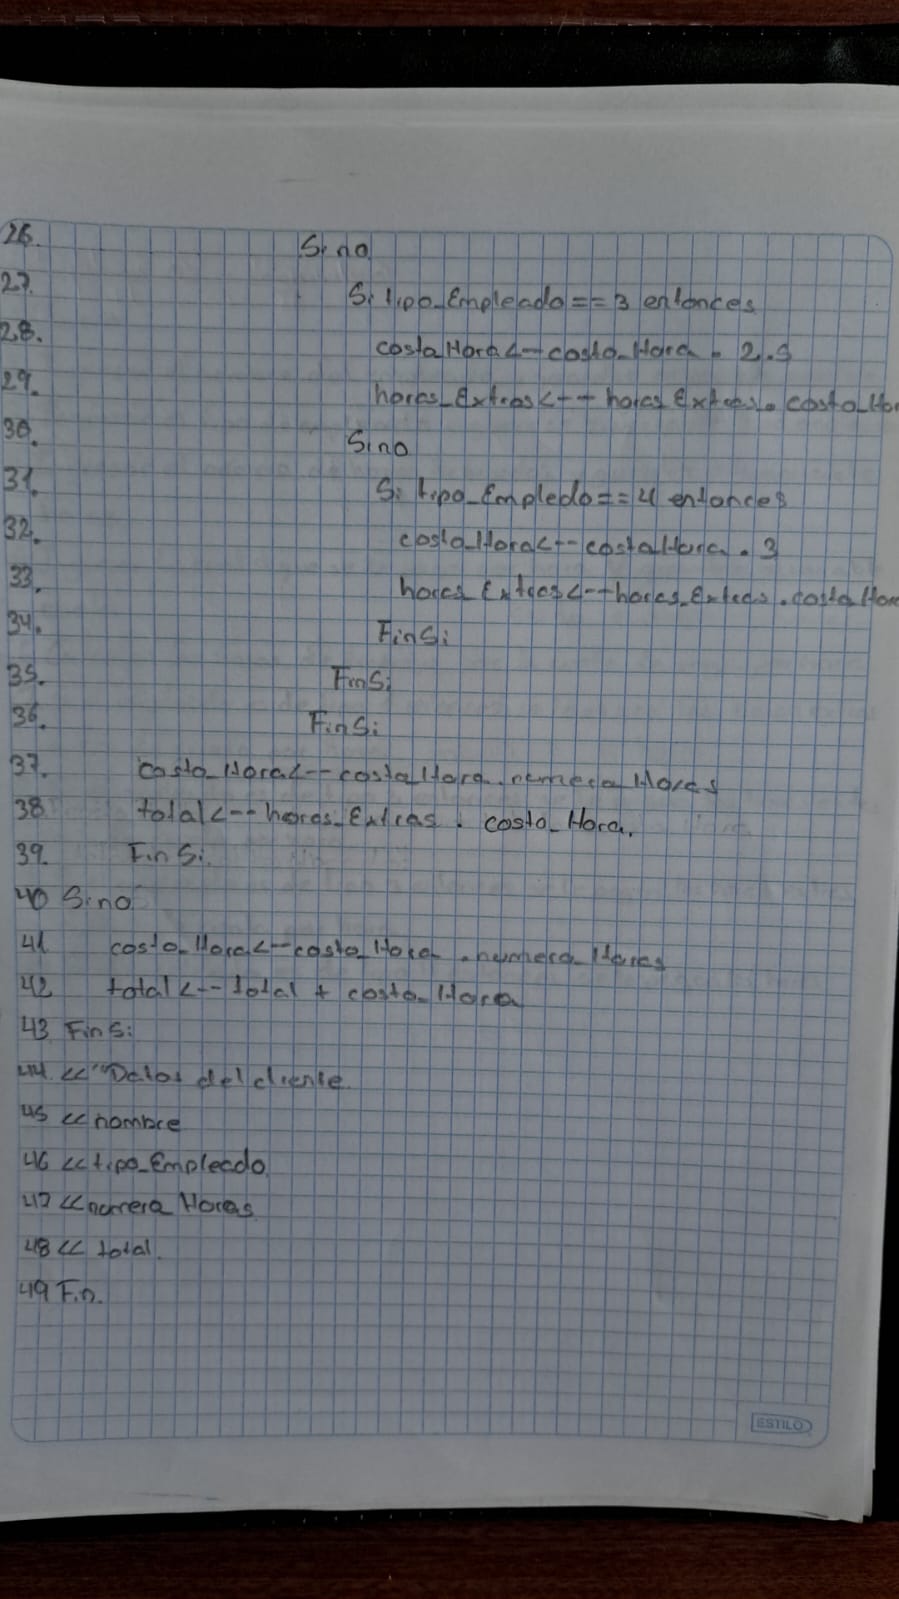 26. Sino
27. Si tipo_Empleado == 3 entonces
28. costaHora <-- costo_Hora . 2.5
29. horas_Extras <-- horas_Extras . costo_Hor
30. Sino
31. Si tipo_Empledo == 4 entonces
32. costo_Hora <-- costaHora . 3
33. horas_Extras <-- horas_Extras . costaHor
34. FinSi
35. FinSi
36. FinSi
37. costo_Hora <-- costaHora . numero_Horas
38 total <-- horas_Extras . costo_Hora.
39. FinSi
40 Sino
41 costo_Hora <-- costo_Hora . numero_Horas
42 total <-- total + costo_Hora
43 FinSi
44. << "Datos del cliente
45 << nombre
46 << tipo_Empleado
47 << numero Horas
48 << total.
49 Fin.
ESTILO